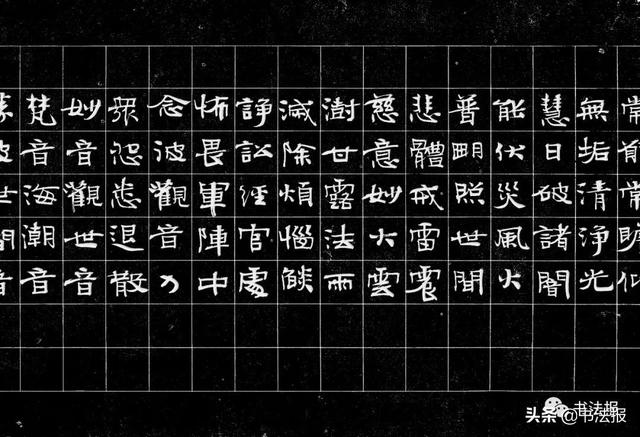 常常瞻仰
無垢清淨光
慧日破諸闇
能伏災風火
普明照世間
悲體戒雷震
慈意妙大雲
澍甘露法雨
滅除煩惱燄
諍訟經官處
怖畏軍陣中
念彼觀音力
眾怨悉退散
妙音觀世音
梵音海潮音
彼世間音
书法报
头条 @书法报